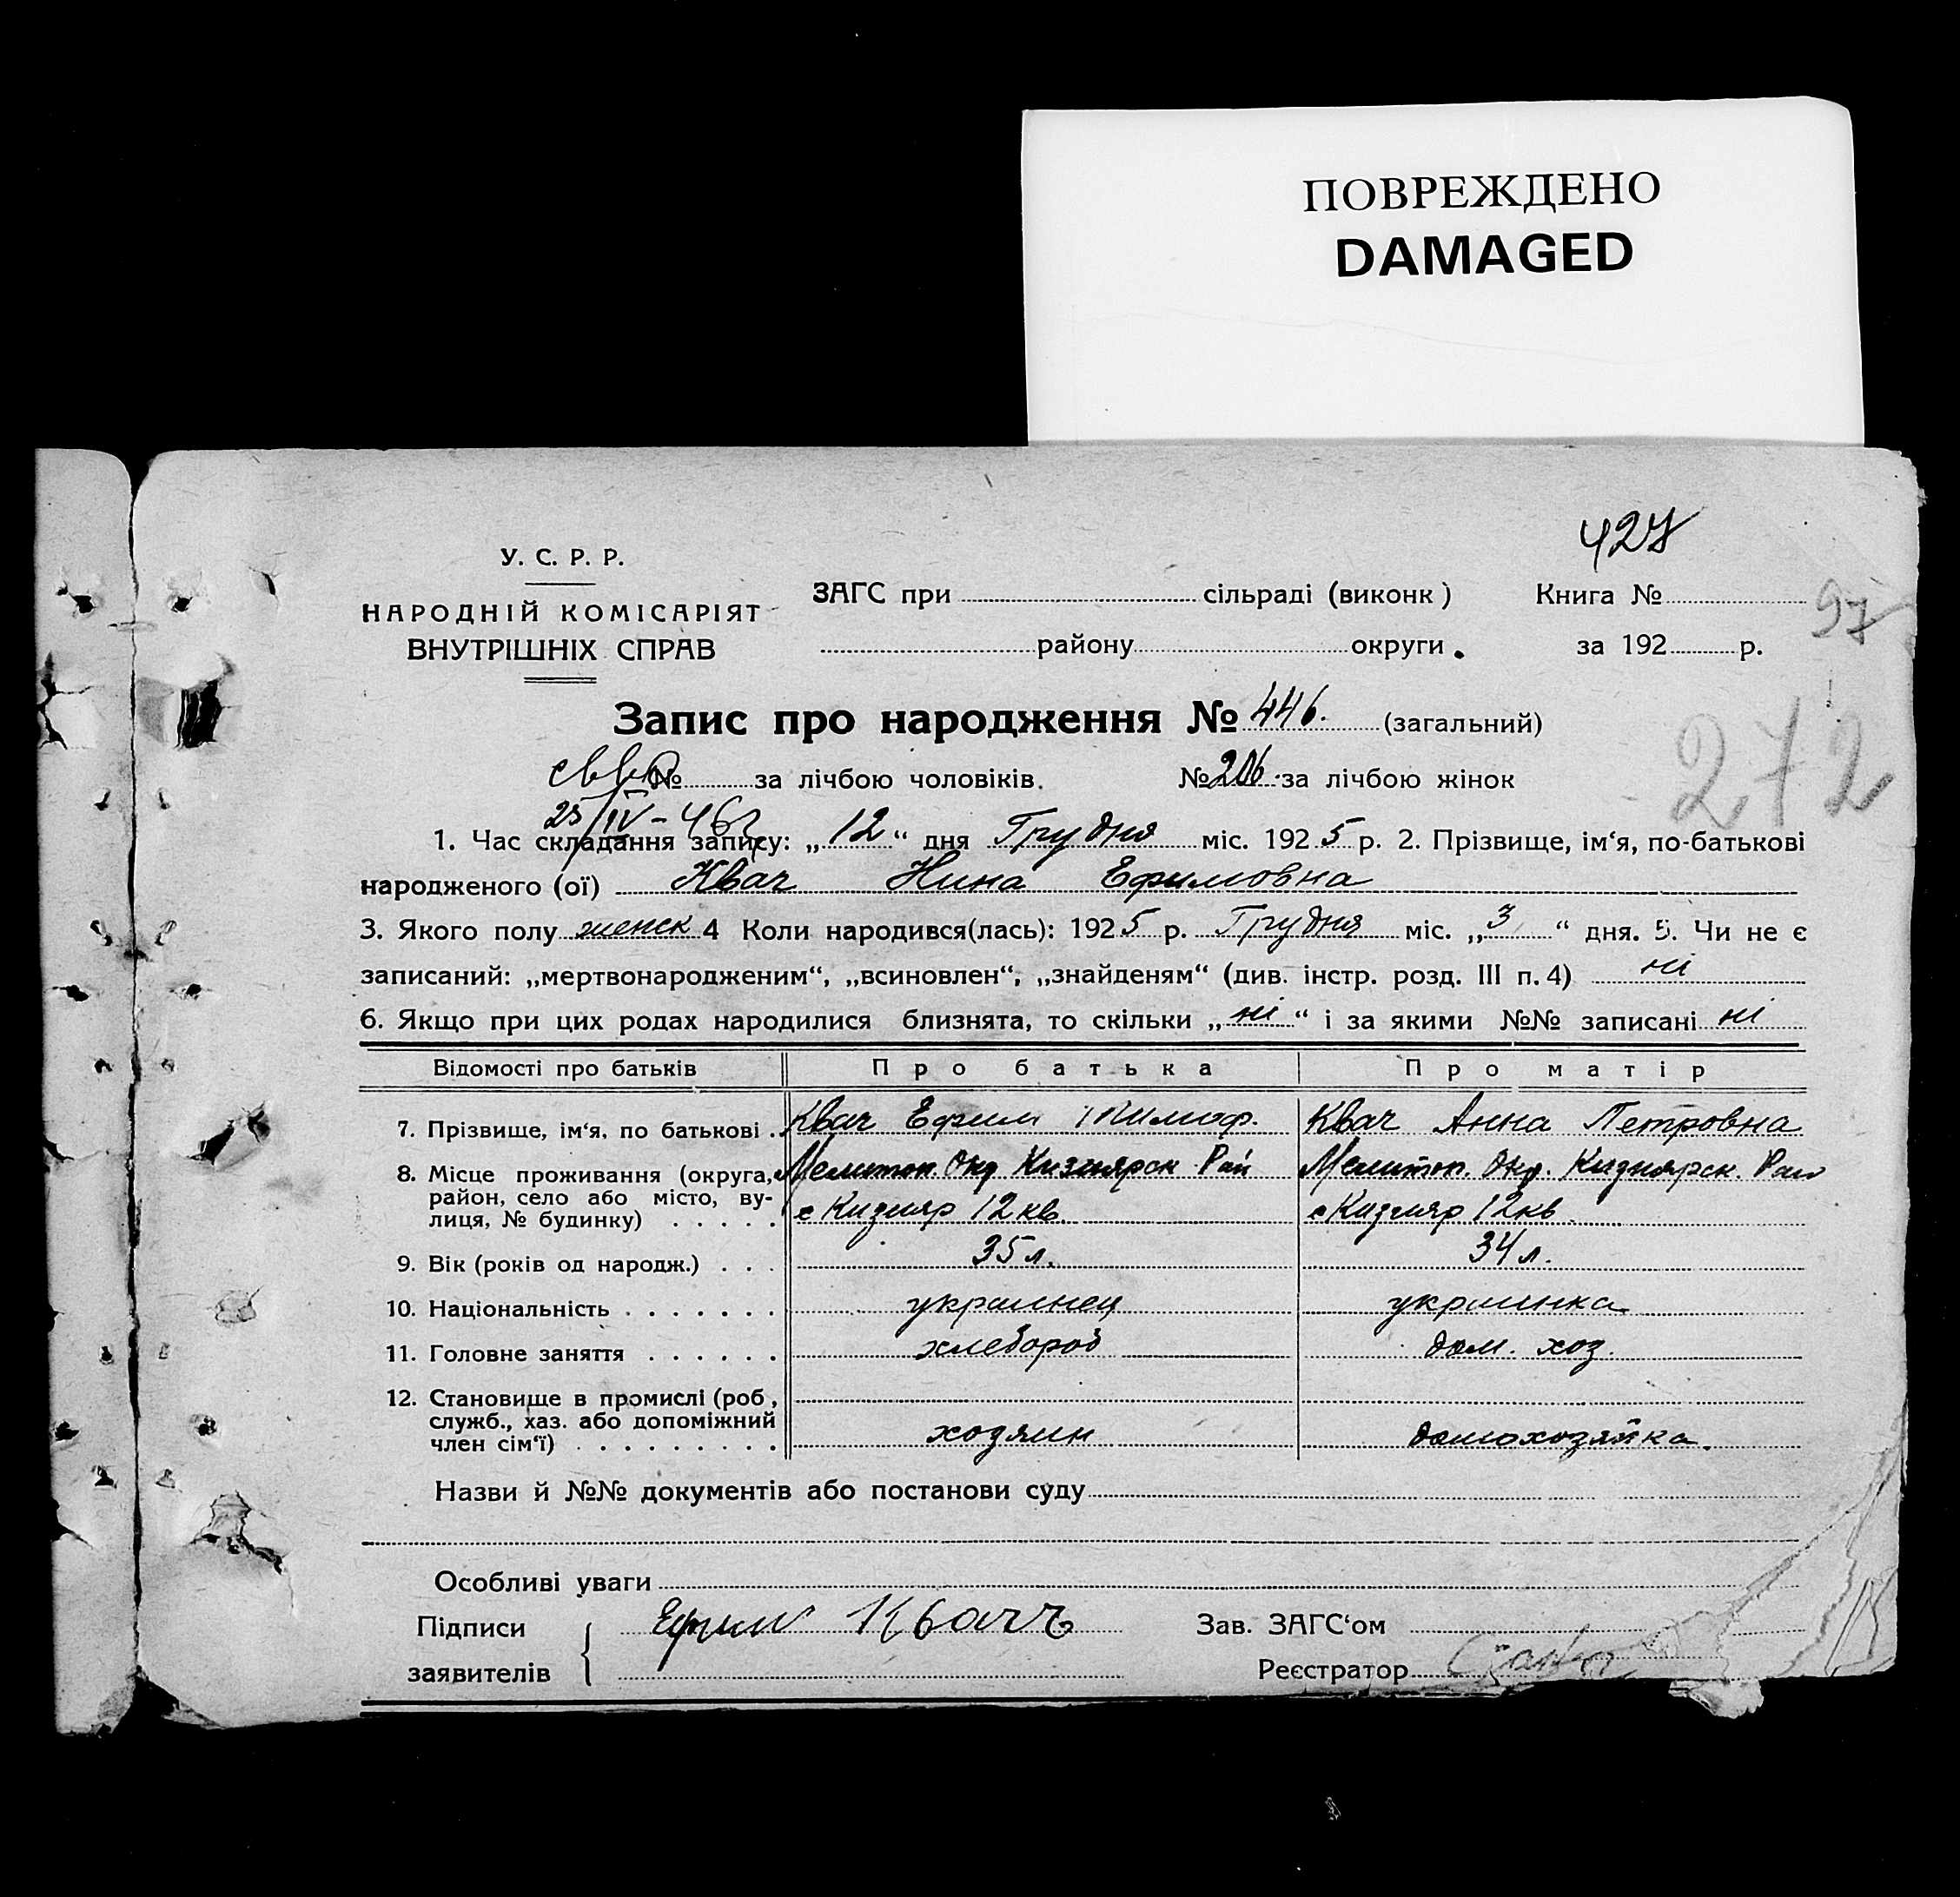 ПОВРЕЖДЕНО
DAMAGED
427
У. С. Р. Р.
НАРОДНІЙ КОМІСАРІЯТ
ВНУТРІШНІХ СПРАВ
ЗАГС при сільраді (виконк)
Книга №
97
району округи.
за 192 р.
Запис про народження № 446. (загальний)
272
№ за лічбою чоловіків. № 206 за лічбою жінок
25/IV-46
1. Час складання запису: „12“ дня Грудня міс. 1925 р. 2. Прізвище, ім‘я, по-батькові
народженого (ої) Квач Нина Ефимовна
3. Якого полу женск 4 Коли народився(лась): 1925 р. Грудня міс. „3“ дня. 5. Чи не є
записаний: „мертвонародженим“, „всиновлен“, „знайденям“ (див. інстр. розд. III п. 4) ні
6. Якщо при цих родах народилися близнята, то скільки „ні“ і за якими №№ записані ні
Відомості про батьків Про батька Про матір
7. Прізвище, ім‘я, по батькові . Квач Ефим Тимоф. Квач Анна Петровна
8. Місце проживання (округа, Мелитоп. Окр Кизиярск Рай Мелитоп. Окр. Кизиярск. Рай
район, село або місто, ву-
лиця, № будинку) . . . . . с Кизияр 12 кв. с Кизияр 12 кв
9. Вік (років од народж.) . . . 35 л. 34 л.
10. Національність . . . . . . . украинец украинка
11. Головне заняття . . . . . . хлебороб дом. хоз.
12. Становище в промислі (роб,
служб., хаз. або допоміжний
член сім‘ї) . . . . . . . . . хозяин домохозяйка.
Назви й №№ документів або постанови суду
Особливі уваги
Підписи Ефим Квачъ Зав. ЗАГС‘ом
заявителів Реєстратор